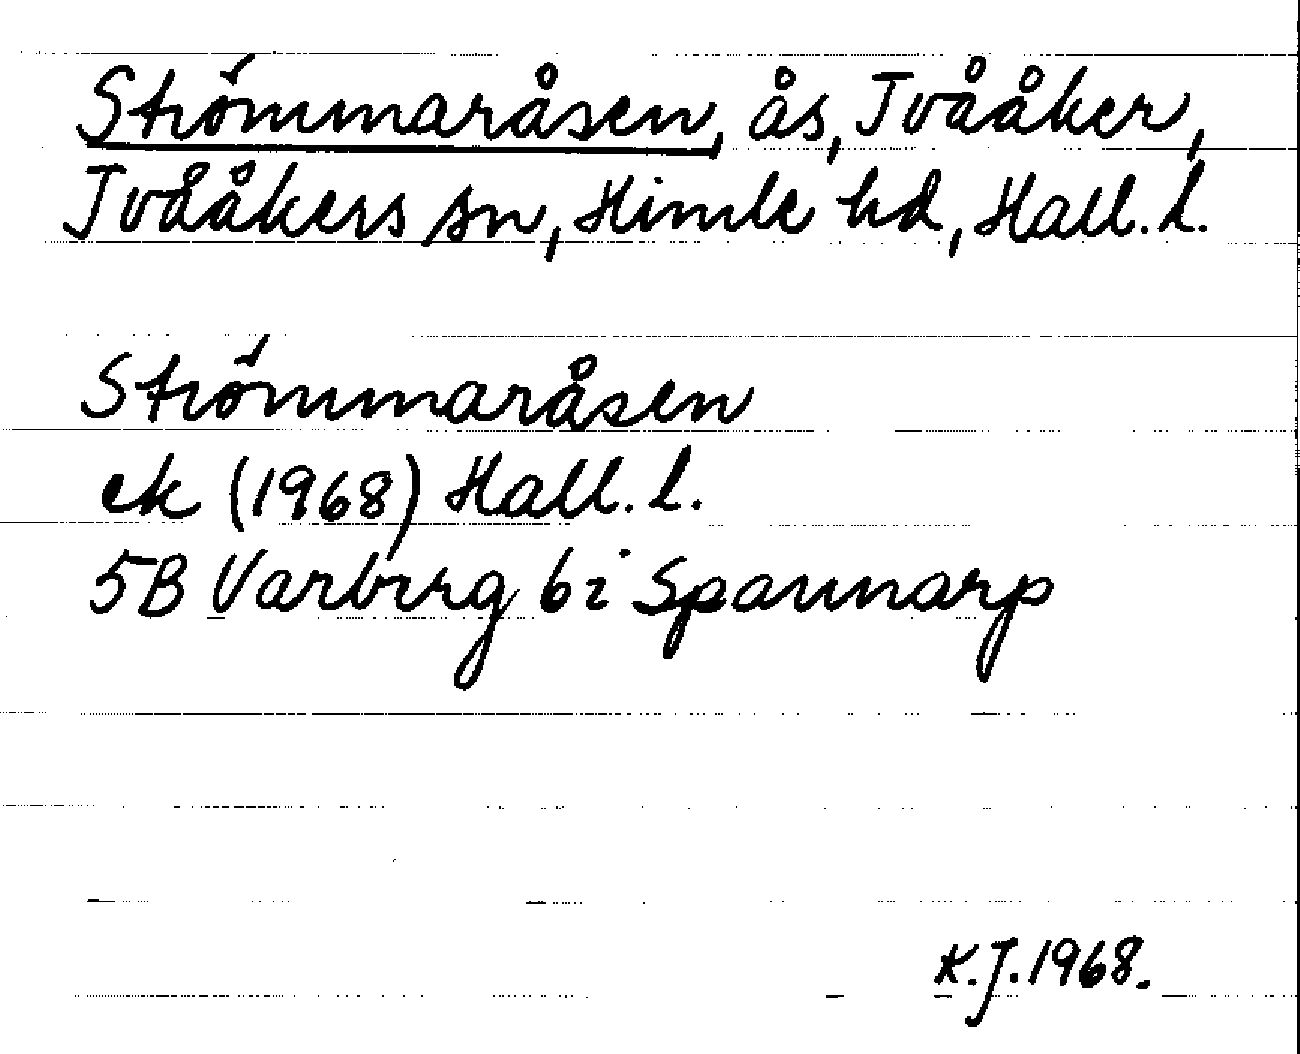 Strömmaråsen, ås, Tvååker,
Tvååkers sn, Himle hd, Hall. l.
Strömmaråsen
ek (1968) Hall. l.
5B Varberg 6i Spannarp
K.J. 1968.